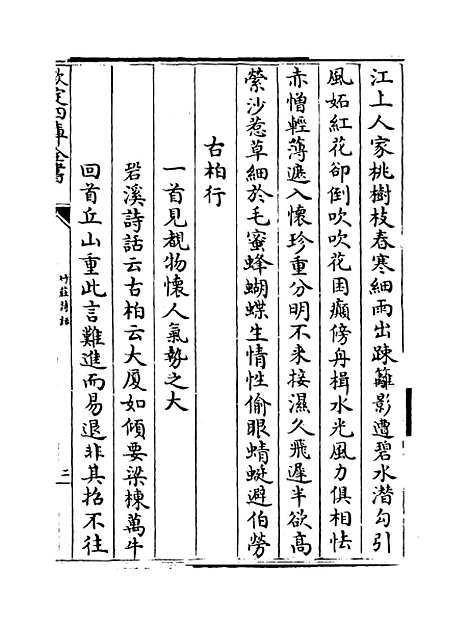 江上人家桃樹枝春寒細雨出疎籬影遭碧水潛勾引
風妬紅花卻倒吹吹花困癲傍舟楫水光風力俱相怯
赤憎輕薄遮入懷珍重分明不來接濕久飛遲半欲髙
縈沙惹草細於毛蜜蜂蝴蝶生情性偷眼蜻蜓避伯勞
古柏行
一首見覩物懷人氣勢之大
䂬溪詩話云古柏云大厦如傾要梁棟萬牛
回首丘山重此言難進而易退非其招不往
欽定四庫全書
竹莊詩話
三